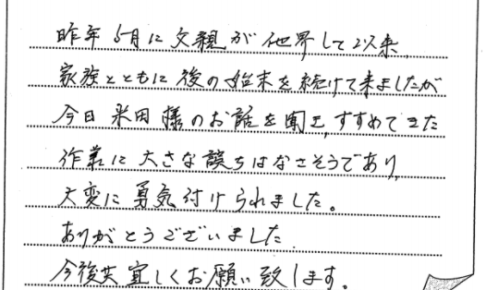 昨年5月に父親が他界して以来、
家族とともに後の始末を続けて来ましたが
今日米田様のお話を聞き、すすめてきた
作業に大きな誤ちはなさそうであり、
大変に勇気付けられました。
ありがとうございました
今後共宜しくお願い致します。